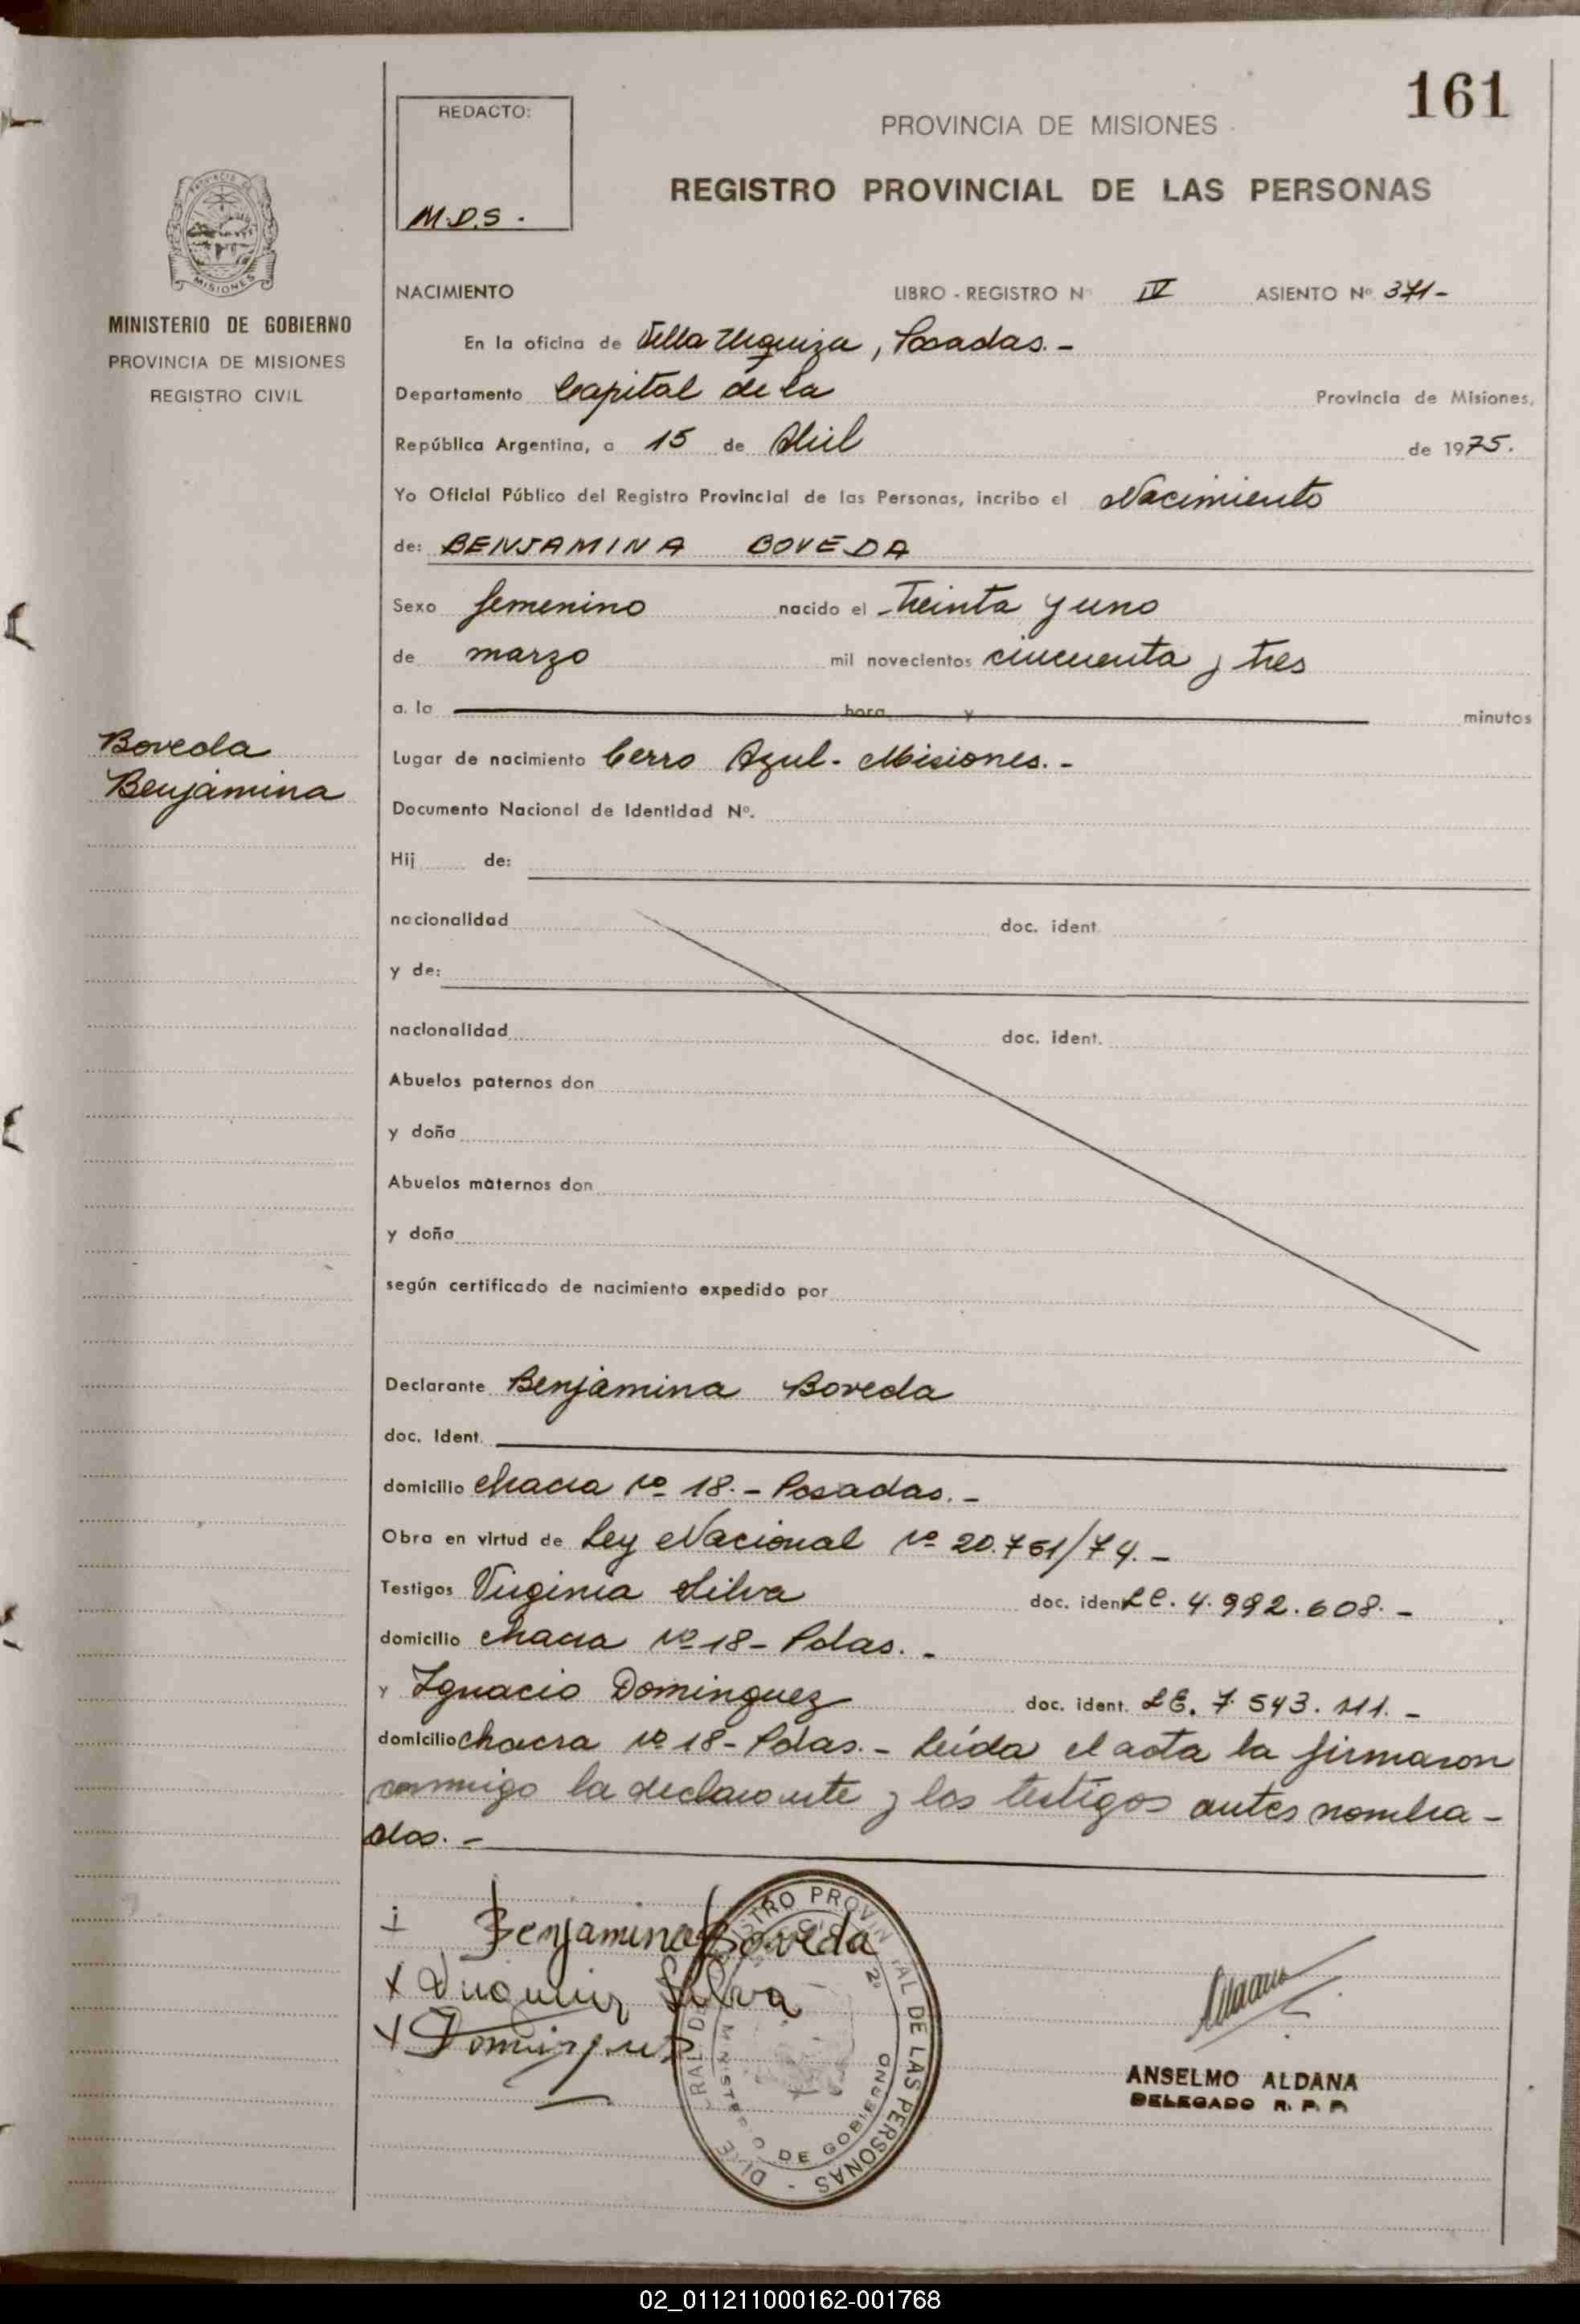 161
REDACTO:
M.D.S.
PROVINCIA DE MISIONES
REGISTRO PROVINCIAL DE LAS PERSONAS
PROVINCIA DE
MISIONES
MINISTERIO DE GOBIERNO
PROVINCIA DE MISIONES
REGISTRO CIVIL
NACIMIENTO LIBRO - REGISTRO Nº IV ASIENTO Nº 371-
En la oficina de Villa Urquiza, Posadas.-
Departamento Capital de la Provincia de Misiones,
República Argentina, a 15 de Abril de 1975.
Yo Oficial Público del Registro Provincial de las Personas, incribo el Nacimiento
de: BENJAMINA BOVEDA
Sexo femenino nacido el treinta y uno
de marzo mil novecientos cincuenta y tres
a. la hora y minutos
Boveda
Benjamina
Lugar de nacimiento Cerro Azul - Misiones.-
Documento Nacional de Identidad Nº.
Hij de:
nacionalidad doc. ident.
y de:
nacionalidad doc. ident.
Abuelos paternos don
y doña
Abuelos maternos don
y doña
según certificado de nacimiento expedido por
Declarante Benjamina Boveda
doc. Ident.
domicilio chacra Nº 18.- Posadas.-
Obra en virtud de Ley Nacional Nº 20.751/74.-
Testigos Virginia Silva doc. ident. LC. 4.992.608.-
domicilio chacra Nº 18- Pdas.-
y Ignacio Dominguez doc. ident. LE. 7.543.111.-
domicilio chacra Nº 18- Pdas.- leída el acta la firmaron
conmigo la declarante y los testigos antes nombra-
dos.-
Benjamina Boveda
x Silva
x Dominguez
MINISTERIO DE GOBIERNO
ANSELMO ALDANA
DELEGADO R. P. P.
02_011211000162-001768